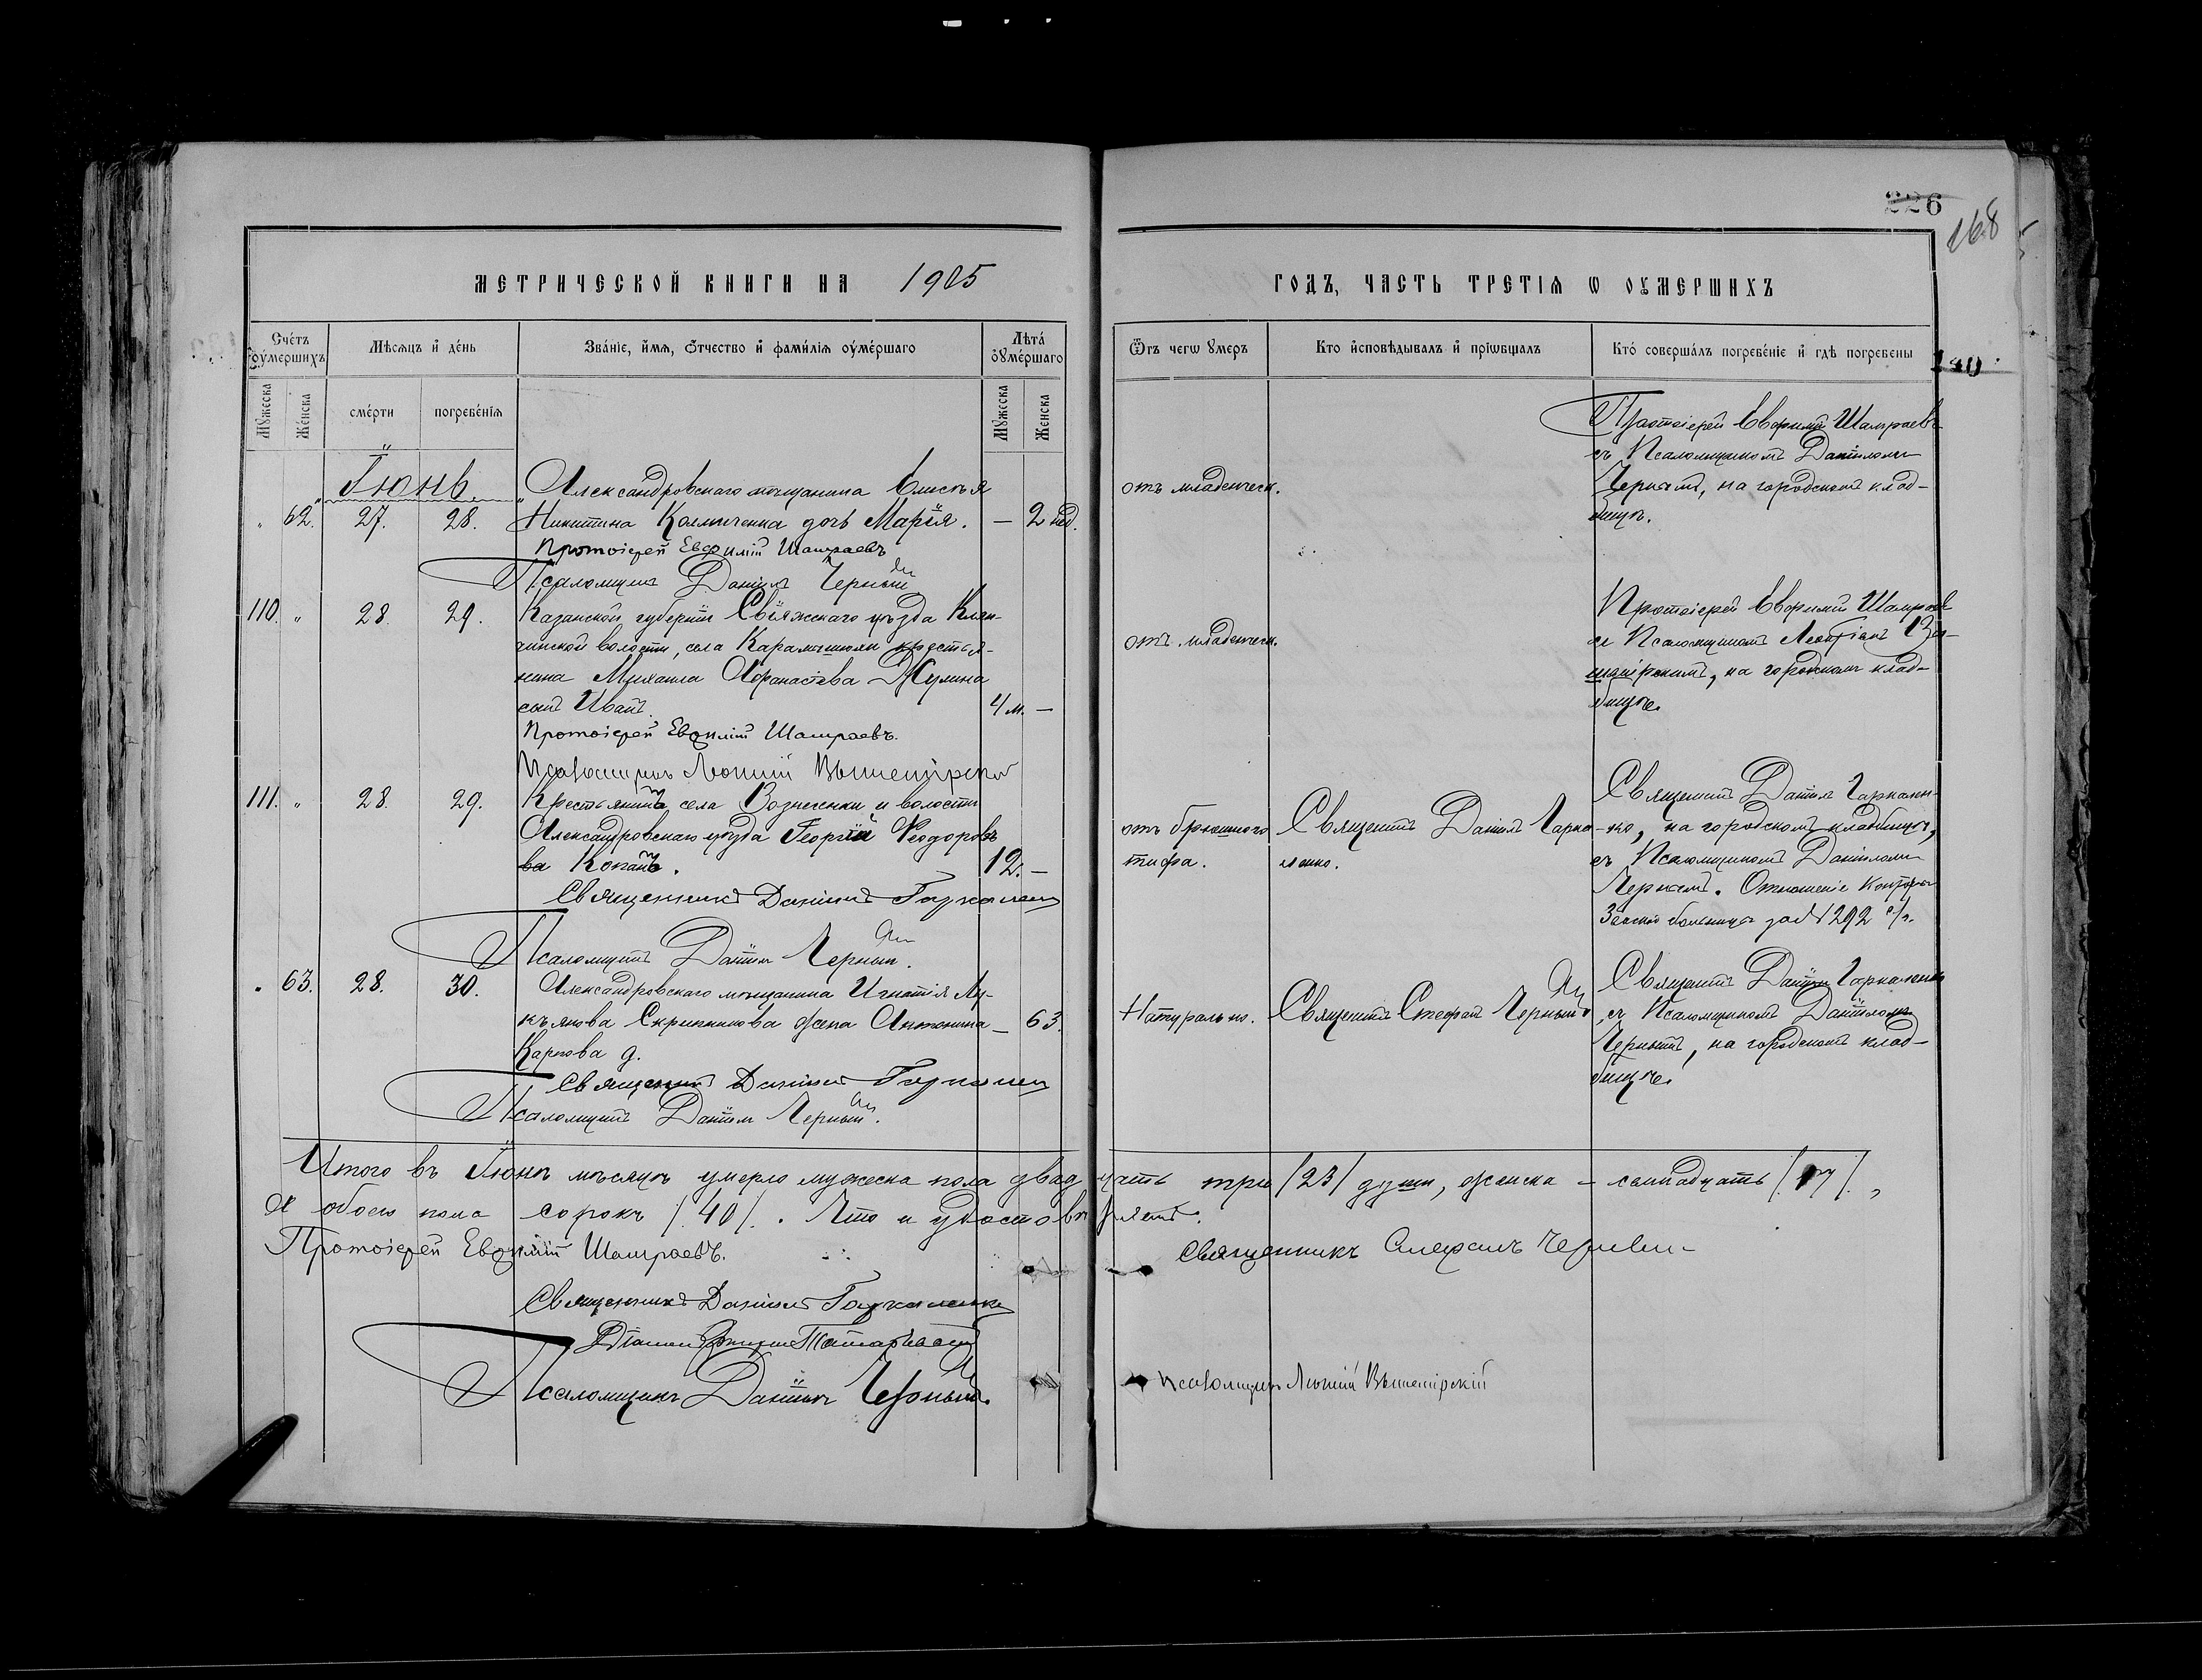 226
168
МЕТРИЧЕСКОЙ КНИГИ НА 1905
ГОДЪ, ЧАСТЬ ТРЕТІѦ Ѡ ОУМЕРШИХЪ
140
Счетъ оумершихъ
Мѣсяцъ и день
Званіе, имя, отчество и фамилія оумершаго
Лѣта оумершаго
Мужеска
Женска
смерти
погребенія
Мужеска
Женска
Отъ чегѡ умеръ
Кто исповѣдывалъ и пріѡбщалъ
Кто совершалъ погребеніе и гдѣ погребены
Іюнь
62. 27. 28. Александровскаго мѣщанина Елисѣя
Никитина дочь Марія. — 2 нед.
отъ младенческ.
Протоіерей Евфимій Шамраевъ
съ Псаломщикомъ Даніиломъ
Чернымъ, на городскомъ клад-
бищѣ.
Протоіерей Евфимій Шамраевъ
Псаломщикъ Даніилъ Черный
110. 28. 29. Казанской губерніи Свіяжскаго уѣзда
волости, села крестья-
нина Михаила Афанасіева
сынъ Иванъ. 4 м. —
отъ младенческ.
Протоіерей Евфимій Шамраевъ
съ Псаломщикомъ
на городскомъ клад-
бищѣ.
Протоіерей Евфимій Шамраевъ.
Псаломщикъ
111. 28. 29. Крестьянинъ села Вознесенки и волости
Александровскаго уѣзда Георгій Ѳеодоровъ
12. —
отъ брюшного
тифа.
Священникъ Даніилъ Гарка-
ленко.
Священникъ Даніилъ Гаркален-
ко, на городскомъ кладбищѣ,
съ Псаломщикомъ Даніиломъ
Чернымъ. Отношеніе Конторы
Земской больницы за № 1292 с/г.
Священникъ Даніилъ Гаркаленко
Псаломщикъ Даніилъ Черный.
63. 28. 30. Александровскаго мѣщанина Игнатія Лу-
кьянова Скрипникова жена Антонина — 63.
Карпова д.
Натурально.
Священникъ Стефанъ Черный
Священникъ Даніилъ Гаркаленко
съ Псаломщикомъ Даніиломъ
Чернымъ, на городскомъ клад-
бищѣ.
Священникъ Даніилъ Гаркаленко
Псаломщикъ Даніилъ Черный.
Итого въ Іюнѣ мѣсяцѣ умерло мужеска пола двадцать три /23/ души, женска — семнадцать /17/,
а обоего пола сорокъ /40/. Что и удостовѣряемъ.
Протоіерей Евфимій Шамраевъ.
Священникъ Стефанъ
Священникъ Даніилъ Гаркаленко
Псаломщикъ Даніилъ Черный.
Псаломщикъ